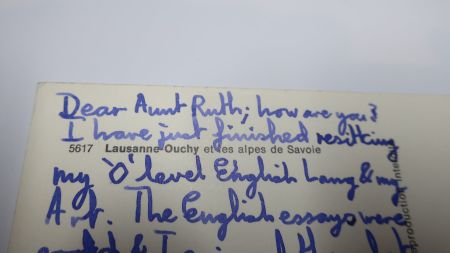 Dear Aunt Ruth; how are you?
I have just finished resitting
5617 Lausanne-Ouchy et les alpes de Savoie
my 'O' level English Lang & my
Art. The English essays were